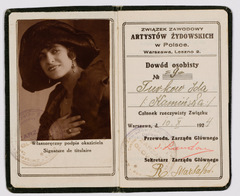 Własnoręczny podpis okaziciela
Signature de titulaire
ZWIĄZEK ZAWODOWY
ARTYSTÓW ŻYDOWSKICH
w Polsce,
Warszawa, Leszno 2.
Dowód osobisty
№ 9
Turkow Ida
/Kamińska/
Członek rzeczywisty Związku
Warszawa, d.
Przewodn. Zarządu Głównego
Sekretarz Zarządu Głównego